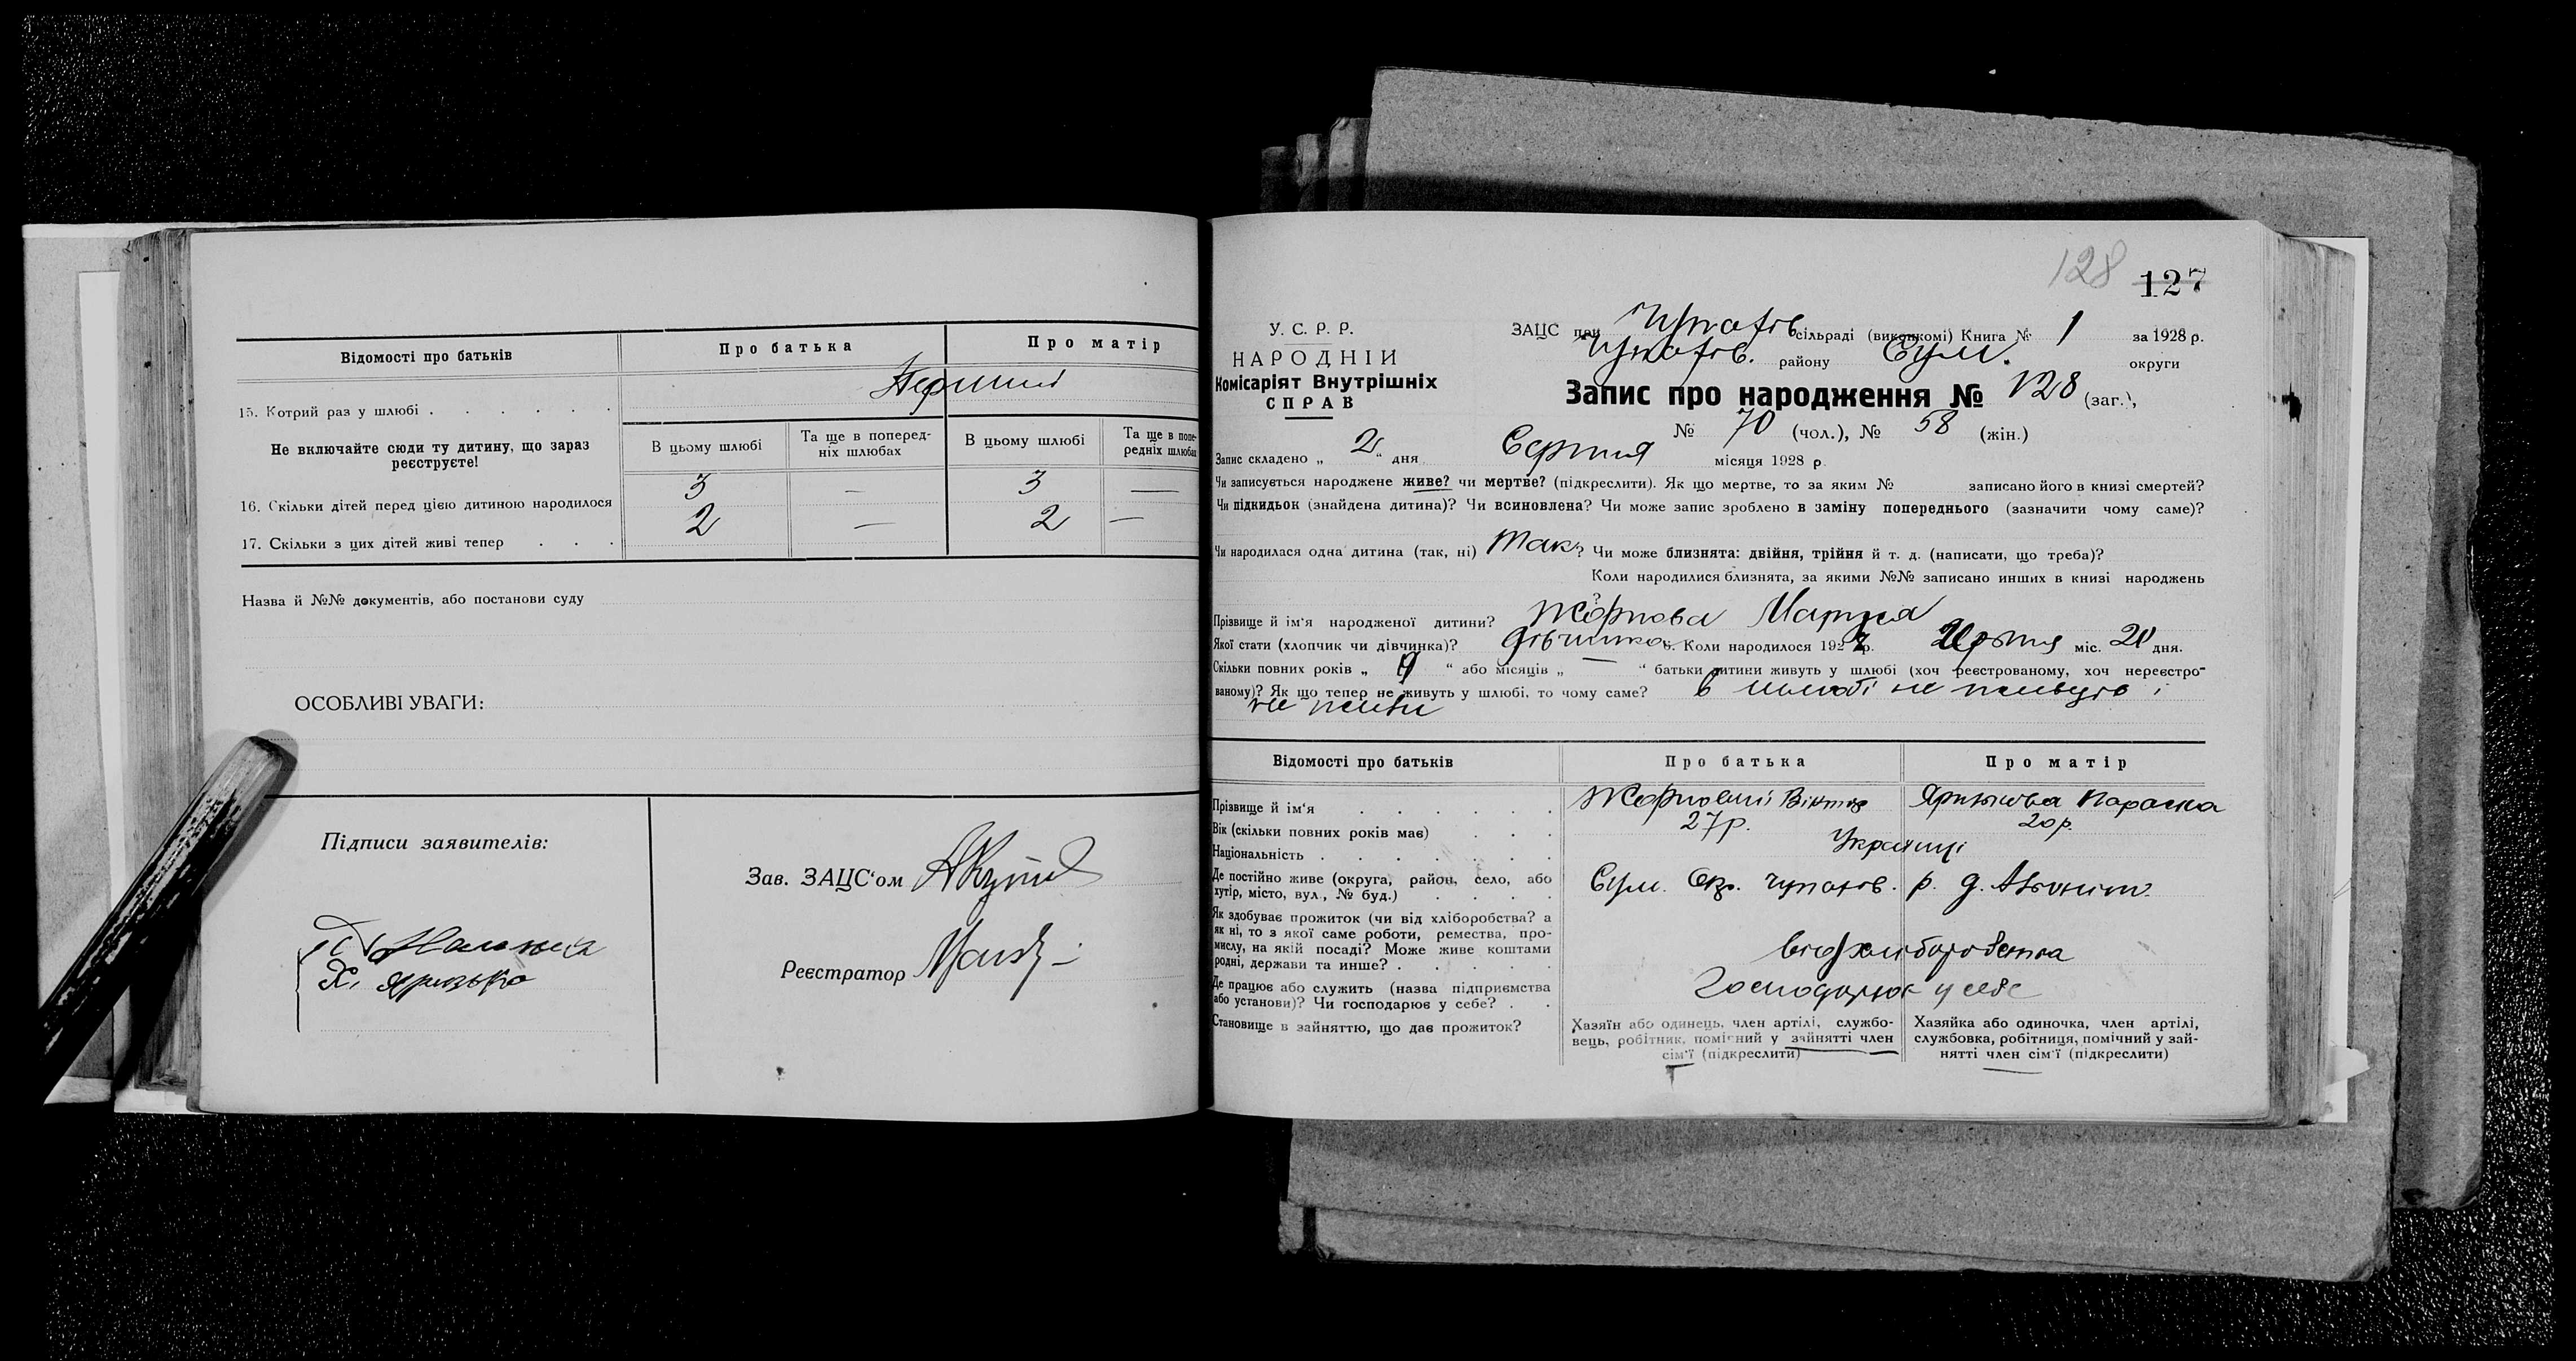 Відомості про батьків
Про батька
Про матір
15. Котрий раз у шлюбі
Перший
Не включайте сюди ту дитину, що зараз реєструєте!
В цьому шлюбі
Та ще в попередніх шлюбах
В цьому шлюбі
Та ще в попередніх шлюбах
16. Скільки дітей перед цією дитиною народилося
3 — 3 —
17. Скільки з цих дітей живі тепер
2 — 2 —
Назва й №№ документів, або постанови суду
ОСОБЛИВІ УВАГИ:
Підписи заявителів:
Зав. ЗАЦС'ом
Реєстратор
128 127
У. С. Р. Р.
НАРОДНІЙ
Комісаріят Внутрішніх
СПРАВ
ЗАЦС при Чупахів сільраді (виконкомі) Книга № 1 за 1928 р.
Чупахів. району Сум. округи
Запис про народження № 128 (заг.),
№ 70 (чол.), № 58 (жін.)
Запис складено „ 2 “ дня Серпня місяця 1928 р.
Чи записується народжене живе? чи мертве? (підкреслити). Як що мертве, то за яким № записано його в книзі смертей?
Чи підкидьок (знайдена дитина)? Чи всиновлена? Чи може запис зроблено в заміну попереднього (зазначити чому саме)?
Чи народилася одна дитина (так, ні) Так? Чи може близнята: двійня, трійня й т. д. (написати, що треба)?
Коли народилися близнята, за якими №№ записано инших в книзі народжень
Прізвище й ім'я народженої дитини? Жорнова Маруся
Якої стати (хлопчик чи дівчинка)? дівчинка. Коли народилося 192 р. міс. дня.
Скільки повних років „ “ або місяців „ — “ батьки дитини живуть у шлюбі (хоч реєстрованому, хоч нереєстрованому)? Як що тепер не живуть у шлюбі, то чому саме? в шлюбі не живуть і
не жили
Відомості про батьків
Про батька
Про матір
Прізвище й ім'я
Параска
Вік (скільки повних років має)
27р. 20р.
Національність
Українці
Де постійно живе (округа, район, село, або хутір, місто, вул., № буд.)
Сум. Окр. Чупахів. р.
Як здобуває прожиток (чи від хліборобства? а як ні, то з якої саме роботи, ремества, промислу, на якій посаді? Може живе коштами родні, держави та инше?
від хліборобства
Де працює або служить (назва підприємства або установи)? Чи господарює у себе?
Господарює у себе
Становище в зайняттю, що дає прожиток?
Хазяїн або одинець, член артілі, службовець, робітник, помічний у зайнятті член сім'ї (підкреслити)
Хазяйка або одиночка, член артілі, службовка, робітниця, помічний у зайнятті член сім'ї (підкреслити)